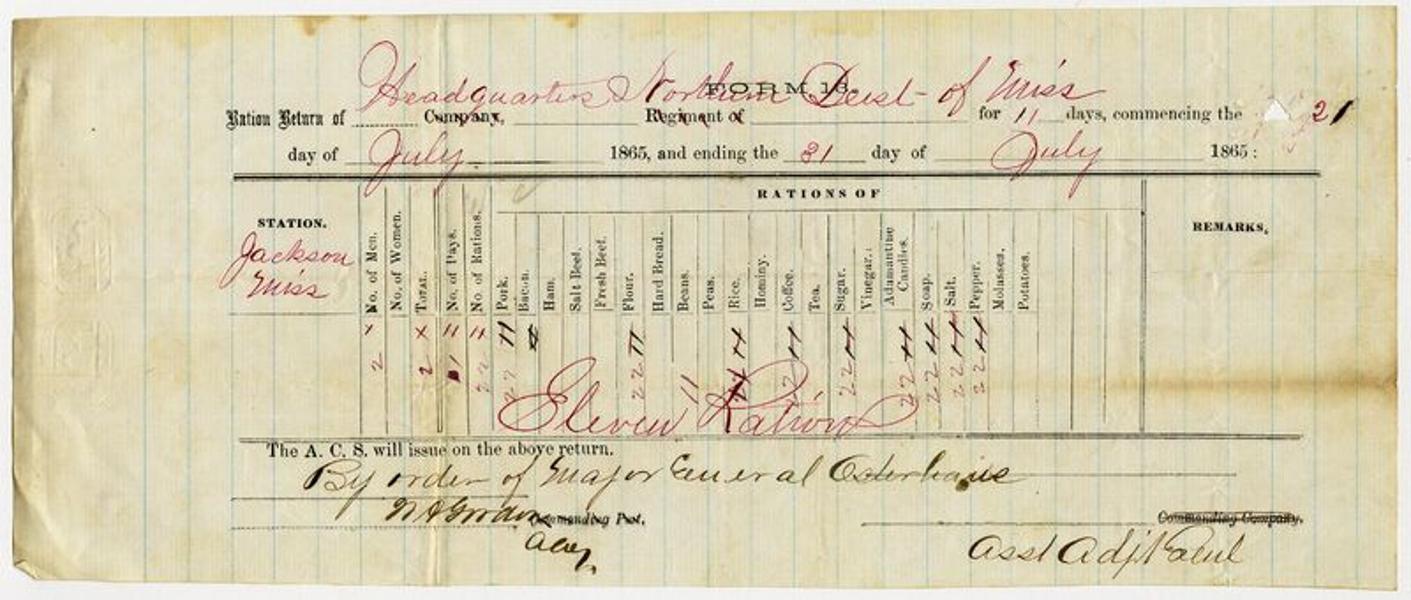 FORM 13.
Headquarters Northern Dist of Miss
Ration Return of Company, Regiment of for 11 days, commencing the 21
day of July 1865, and ending the 31 day of July 1865:
RATIONS OF
STATION. No. of Men. No. of Women. Total. No. of Days. No of Rations. Pork. Bacon. Ham. Salt Beef. Fresh Beef. Flour. Hard Bread. Beans. Peas. Rice. Hominy. Coffee. Tea. Sugar. Vinegar. Adamantine Candles. Soap. Salt. Pepper. Molasses. Potatoes. REMARKS,
Jackson
Miss
2 2 22 22 22 11 22 22 22 22 22 22
Eleven Rations
The A. C. S. will issue on the above return.
By order of Major General Osterhaus
Commanding Post, Commanding Company,
Asst Adjt Genl